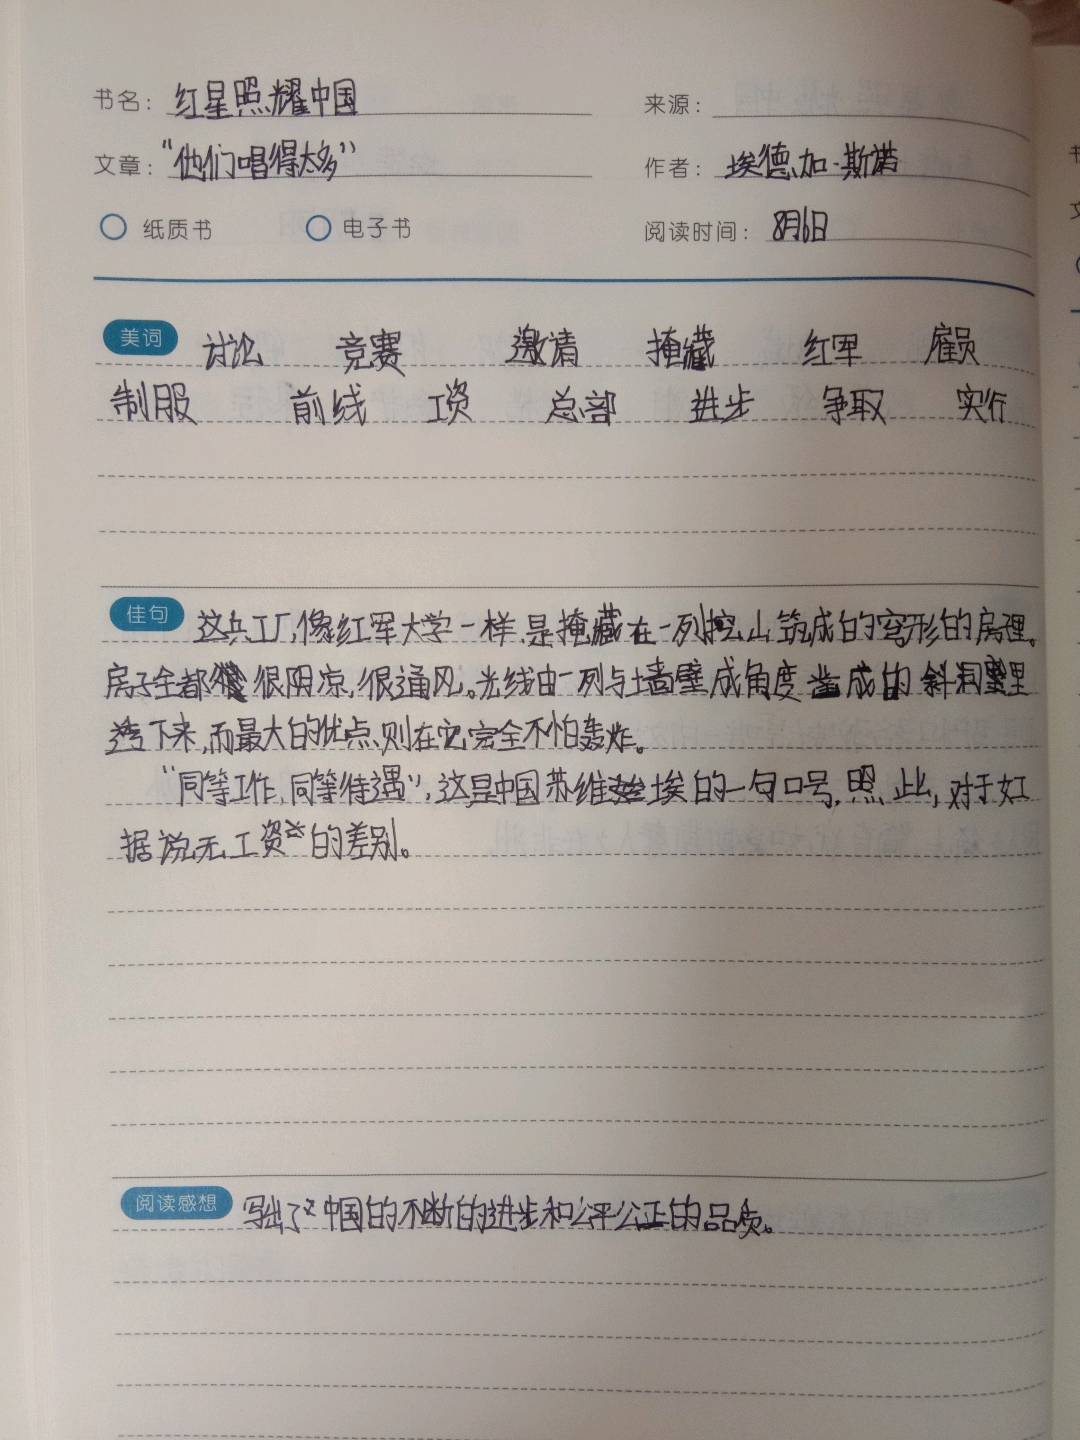 书名：红星照耀中国 来源：
文章："他们唱得太多" 作者：埃德加·斯诺
纸质书 电子书 阅读时间：8月6日
美词 讨论 竞赛 邀请 掩藏 红军 雇员
制服 前线 工资 总部 进步 争取 实行
佳句 这兵工厂,像红军大学一样,是掩藏在一列挖山筑成的穹形的房裡。
房子全都很阴凉,很通风。光线由一列与墙壁成角度造成的斜洞里
透下来,而最大的优点,则在它完全不怕轰炸。
"同等工作,同等待遇",这是中国苏维埃的一句口号,照此,对于女工
据说无工资的差别。
阅读感想 写出了中国的不断的进步和公平公正的品质。